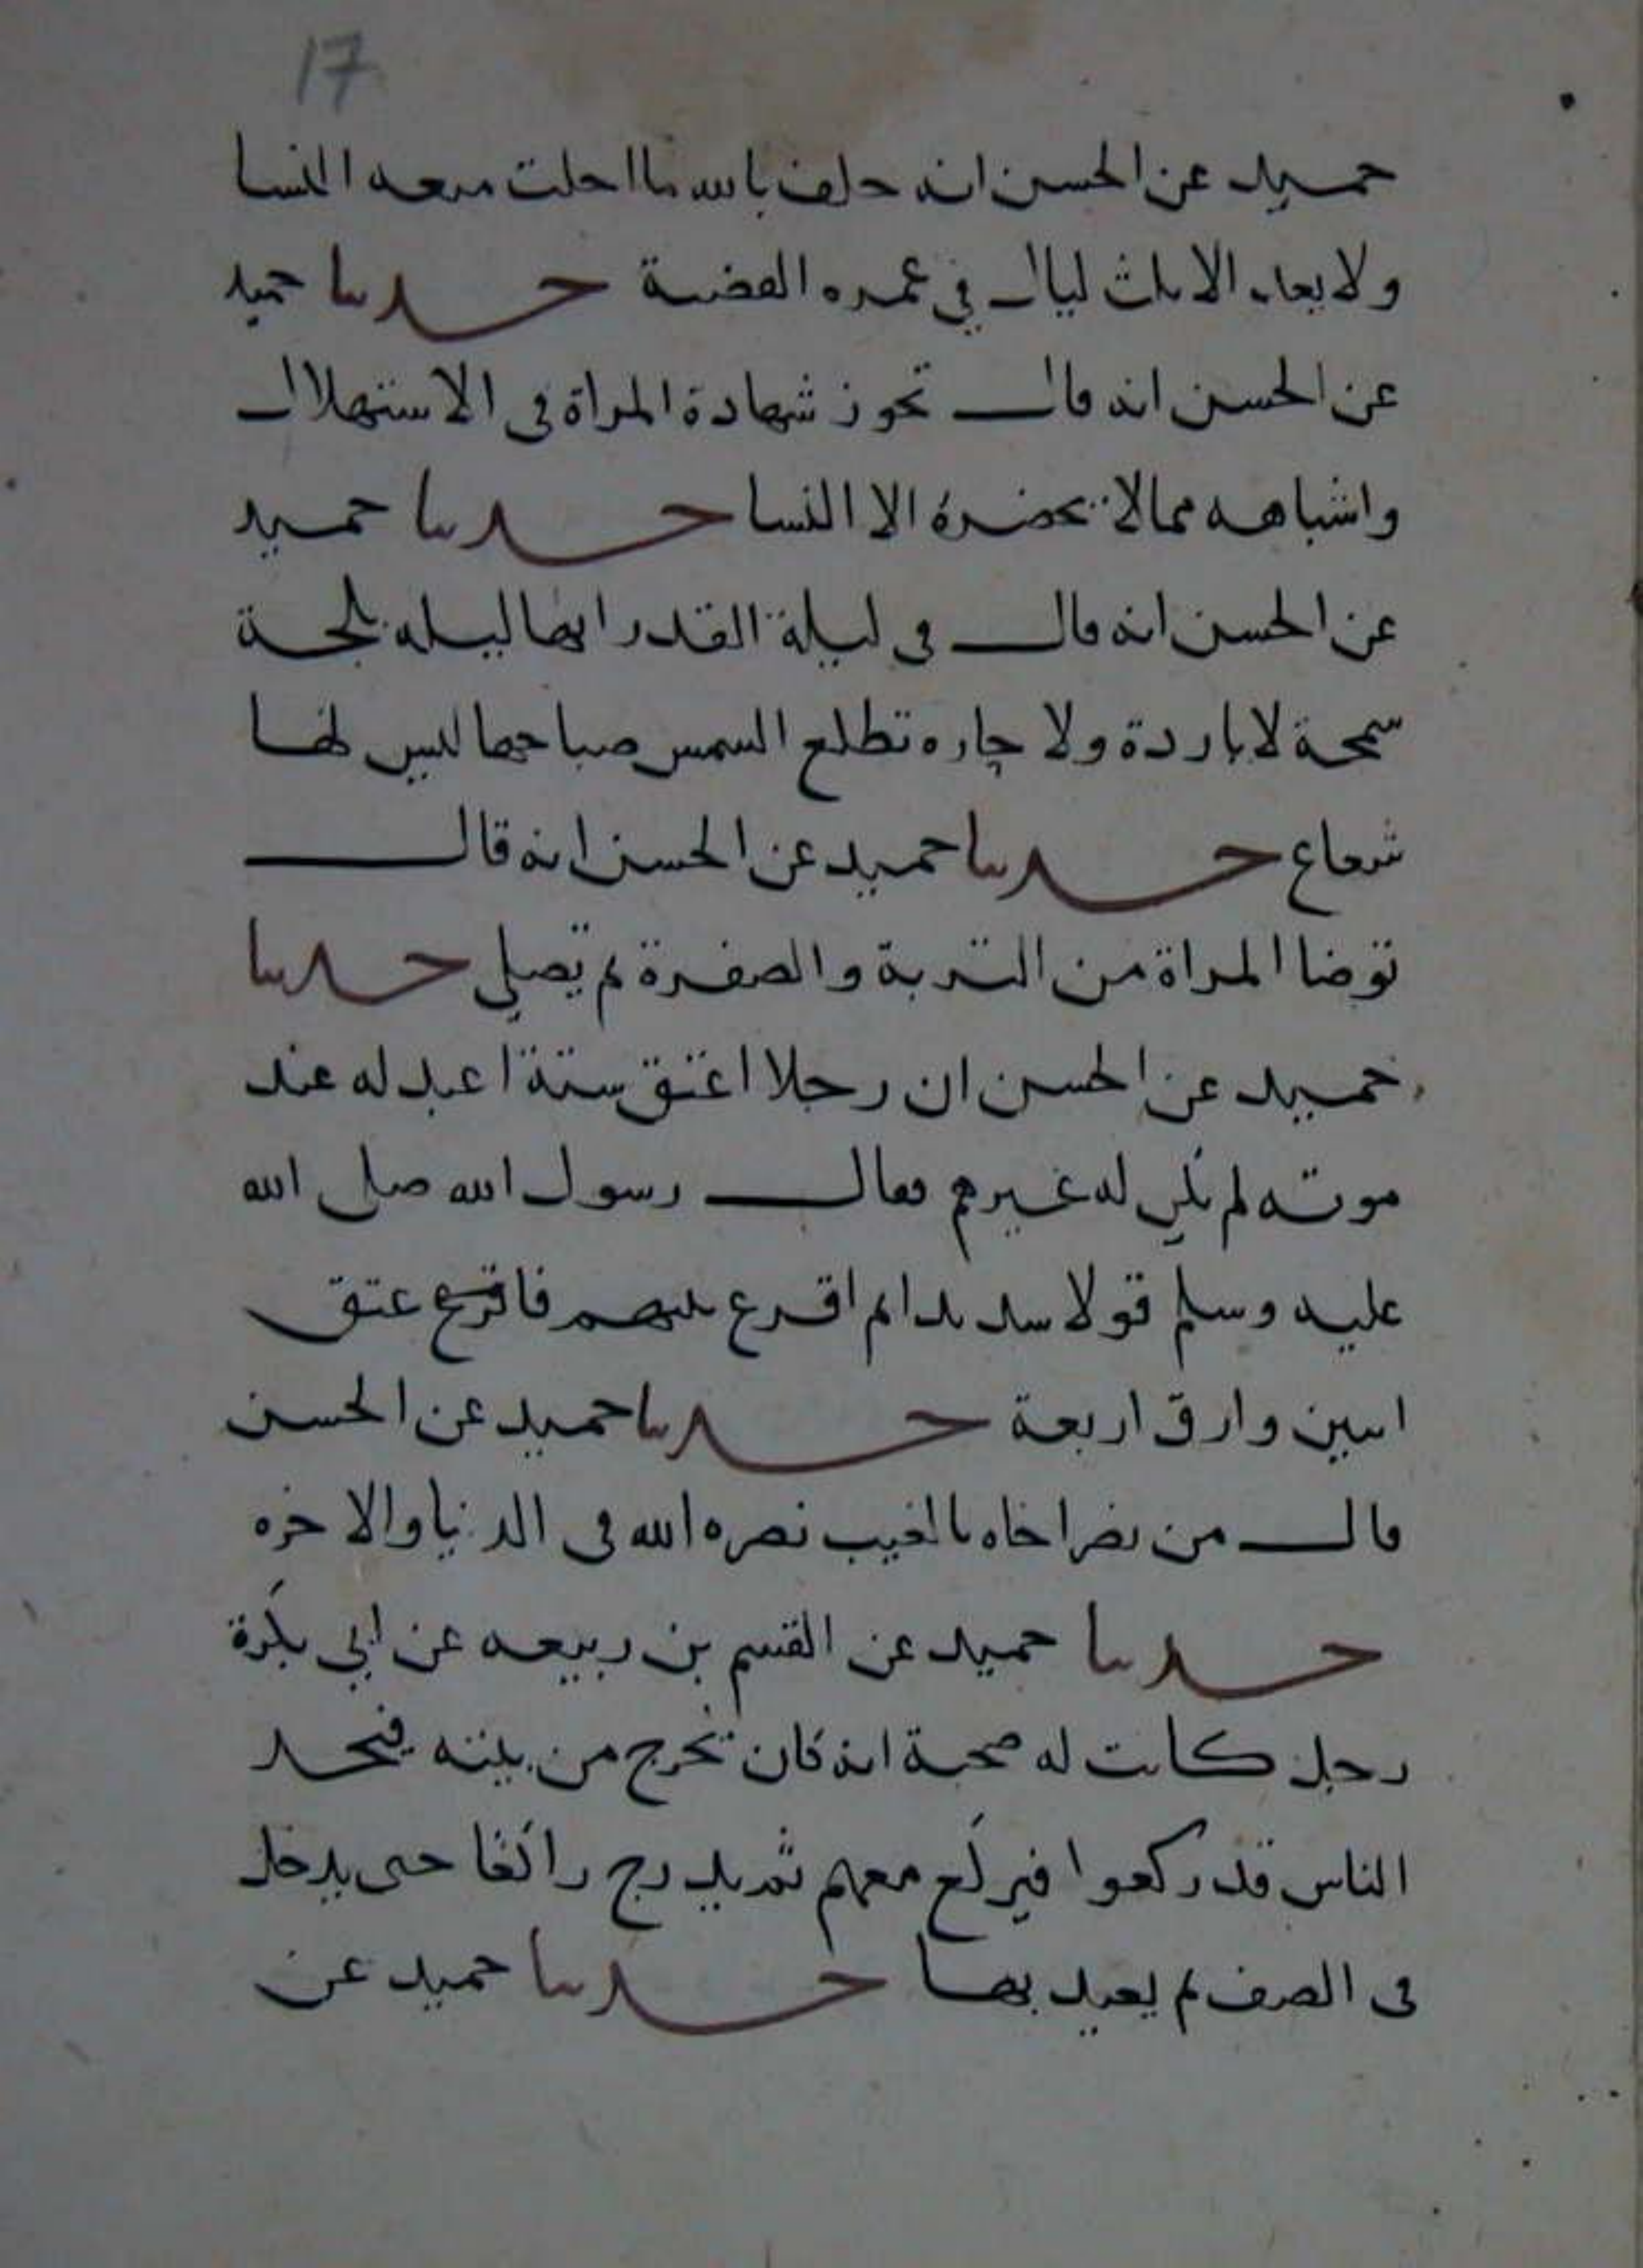 17
حميد عن الحسن انه حلف بالله ما احلت متعه النسا
ولا بعد الا ثلث ليال في عمره القضية حدثنا حميد
عن الحسن انه قال تجوز شهادة المراة في الاستهلال
واشباهه مما لا يحضره الا النسا حدثنا حميد
عن الحسن انه قال في ليلة القدر انها ليله بلجة
سمحة لا باردة ولا حاره تطلع الشمس صباحها ليس لها
شعاع حدثنا حميد عن الحسن انه قال
توضا المراة من التربة والصفرة ثم تصلي حدثنا
حميد عن الحسن ان رجلا اعتق ستة اعبد له عند
موته لم يكن له غيرهم فقال رسول الله صلى الله
عليه وسلم قولا سديدا ثم اقرع بينهم فاقرع عتق
اثنين وارق اربعة حدثنا حميد عن الحسن
قال من نصر اخاه بالغيب نصره الله في الدنيا والاخره
حدثنا حميد عن القسم بن ربيعه عن ابي بكرة
رجل كانت له صحبة انه كان يخرج من بيته فيجد
الناس قد ركعوا فيركع معهم ثم يدرج راكعا حتى يدخل
في الصف ثم يعيد بها حدثنا حميد عن